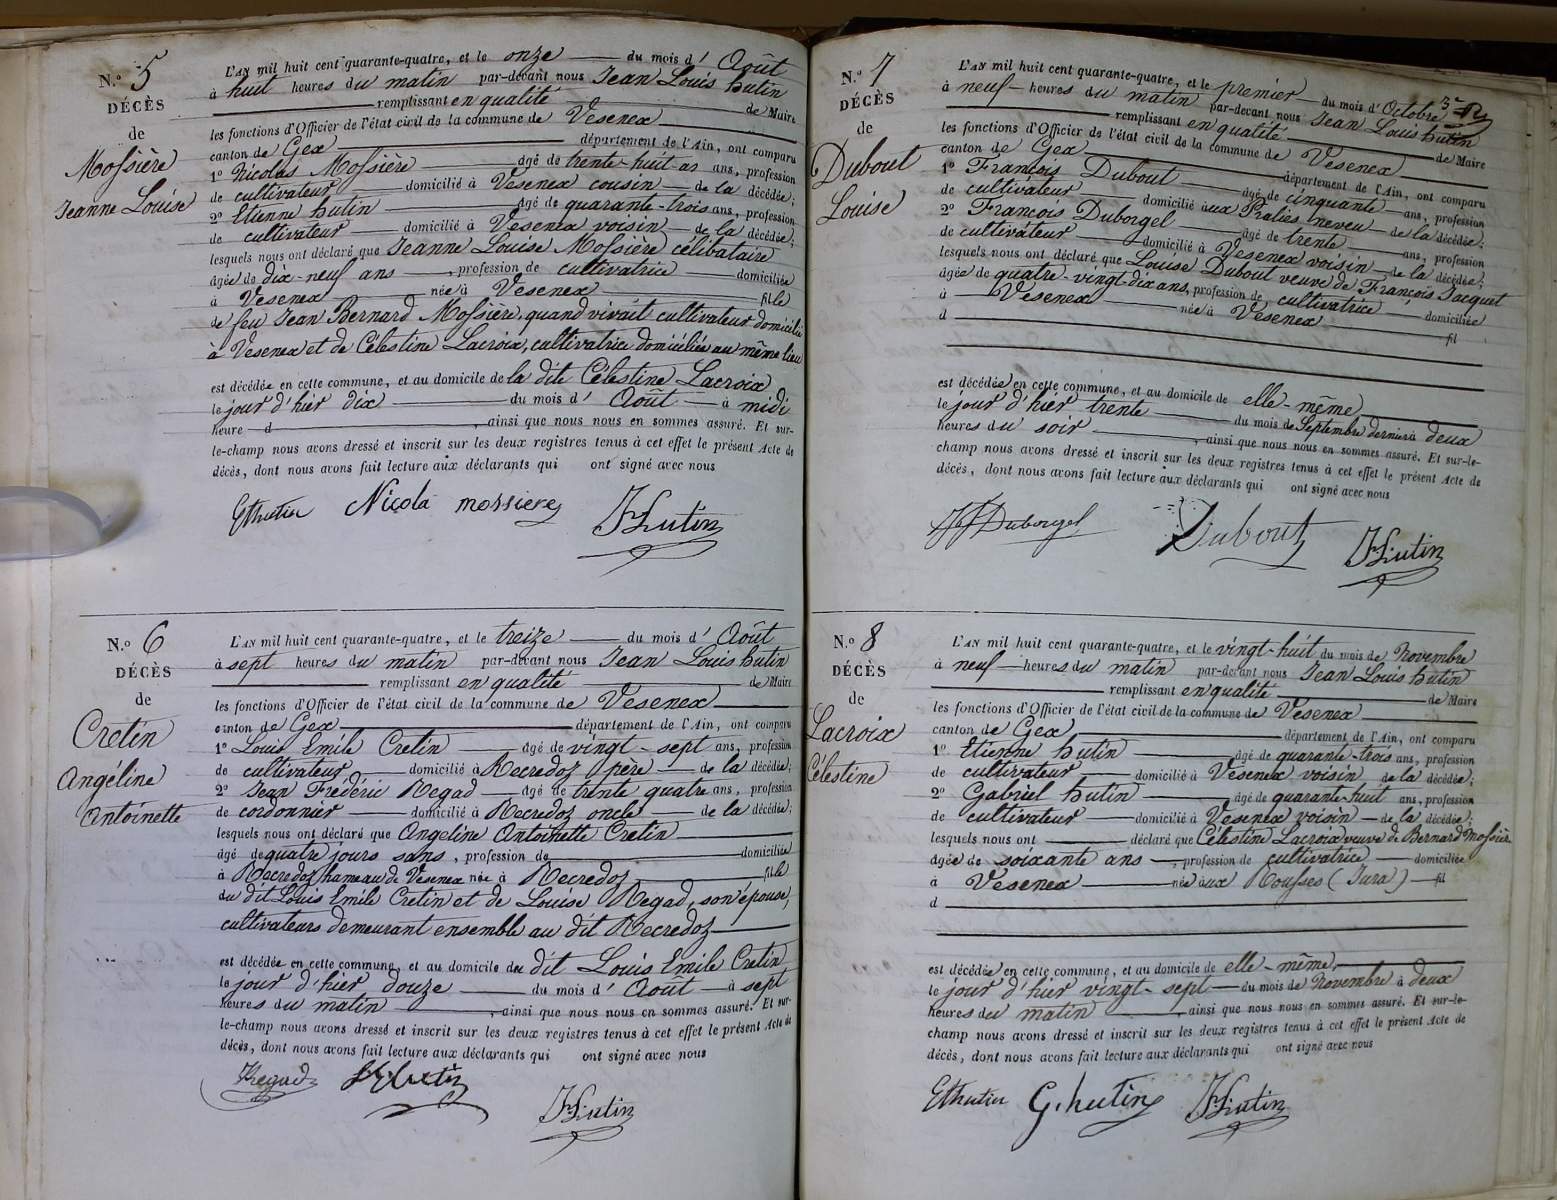 N.º 5
DÉCÈS
de
Mossière
Jeanne Louise
L'AN mil huit cent quarante-quatre, et le onze du mois d' Août
à huit heures du matin par-devant nous Jean Louis hutin
remplissant en qualité de Maire
les fonctions d'Officier de l'état civil de la commune de Vesenex
canton de Gex département de l'Ain, ont comparu
1º Nicolas Mossière âgé de trente-huit as ans, profession
de cultivateur domicilié à Vesenex cousin de la décédée;
2º Etienne hutin âgé de quarante-trois ans, profession
de cultivateur domicilié à Vesenex voisin de la décédée;
lesquels nous ont déclaré que Jeanne Louise Mossière célibataire
âgée de dix-neuf ans, profession de cultivatrice domiciliée
à Vesenex née à Vesenex fille
de feu Jean Bernard Mossière, quand vivait cultivateur domicilié
à Vesenex et de Célestine Lacroix, cultivatrice domiciliée au même lieu
est décédée en cette commune, et au domicile de la dite Célestine Lacroix
le jour d'hier dix du mois d' Août à midi
heure d , ainsi que nous nous en sommes assuré. Et sur-
le-champ nous avons dressé et inscrit sur les deux registres tenus à cet effet le présent Acte de
décès, dont nous avons fait lecture aux déclarants qui ont signé avec nous
Ethutin Nicola mossiere JLhutin
N.º 6
DÉCÈS
de
Cretin
Angéline
Antoinette
L'AN mil huit cent quarante-quatre, et le treize du mois d' Août
à sept heures du matin par-devant nous Jean Louis hutin
remplissant en qualité de Maire
les fonctions d'Officier de l'état civil de la commune de Vesenex
canton de Gex département de l'Ain, ont comparu
1º Louis Emile Cretin âgé de vingt-sept ans, profession
de cultivateur domicilié à Recredoz père de la décédée;
2º Jean Frédéric Regad âgé de trente quatre ans, profession
de cordonnier domicilié à Recredoz oncle de la décédée;
lesquels nous ont déclaré que Angeline Antoinette Cretin
âgé de quatre jours sans, profession de domiciliée
à Recredoz hameau de Vesenex née à Recredoz fille
du dit Louis Emile Cretin et de Louise Regad, son épouse,
cultivateurs demeurant ensemble au dit Recredoz
est décédée en cette commune, et au domicile de dit Louis Emile Cretin
le jour d'hier douze du mois d' Août à sept
heures du matin , ainsi que nous nous en sommes assuré. Et sur-
le-champ nous avons dressé et inscrit sur les deux registres tenus à cet effet le présent Acte de
décès, dont nous avons fait lecture aux déclarants qui ont signé avec nous
Regad JLhutin
N.º 7
DÉCÈS
de
Dubout
Louise
3e
L'AN mil huit cent quarante-quatre, et le premier du mois d' Octobre
à neuf heures du matin par-devant nous Jean Louis hutin
remplissant en qualité de Maire
les fonctions d'Officier de l'état civil de la commune de Vesenex
canton de Gex département de l'Ain, ont comparu
1º François Dubout âgé de cinquante ans, profession
de cultivateur domicilié aux Pralies neveu de la décédée;
2º François Duborgel âgé de trente ans, profession
de cultivateur domicilié à Vesenex voisin de la décédée;
lesquels nous ont déclaré que Louise Dubout veuve de François Jacquet
âgée de quatre-vingt-dix ans, profession de cultivatrice domiciliée
à Vesenex née à Vesenex
d fil
est décédée en cette commune, et au domicile de elle-même
le jour d'hier trente du mois de Septembre dernier à deux
heures du soir , ainsi que nous nous en sommes assuré. Et sur-le-
champ nous avons dressé et inscrit sur les deux registres tenus à cet effet le présent Acte de
décès, dont nous avons fait lecture aux déclarants qui ont signé avec nous
Duborgel Dubout JLhutin
N.º 8
DÉCÈS
de
Lacroix
Célestine
L'AN mil huit cent quarante-quatre, et le vingt-huit du mois de Novembre
à neuf heures du matin par-devant nous Jean Louis hutin
remplissant en qualité de Maire
les fonctions d'Officier de l'état civil de la commune de Vesenex
canton de Gex département de l'Ain, ont comparu
1º Etienne hutin âgé de quarante-trois ans, profession
de cultivateur domicilié à Vesenex voisin de la décédée;
2º Gabriel hutin âgé de quarante-huit ans, profession
de cultivateur domicilié à Vesenex voisin de la décédée;
lesquels nous ont déclaré que Célestine Lacroix veuve de Bernard Mossière
âgée de soixante ans , profession de cultivatrice domiciliée
à Vesenex née aux Rousses (Jura) fil
d
est décédée en cette commune, et au domicile de elle-même,
le jour d'hier vingt-sept du mois de Novembre à deux
heures du matin , ainsi que nous nous en sommes assuré. Et sur-le-
champ nous avons dressé et inscrit sur les deux registres tenus à cet effet le présent Acte de
décès, dont nous avons fait lecture aux déclarants qui ont signé avec nous
Ethutin G. hutin JLhutin